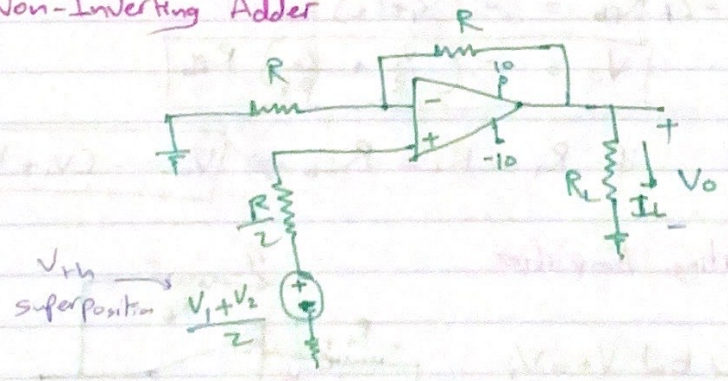 Non-Inverting Adder
R
R
10
-
+
-10
+
R_L
I_L
V_o
-
R/2
V_th
superposition
+
(V_1+V_2)/2